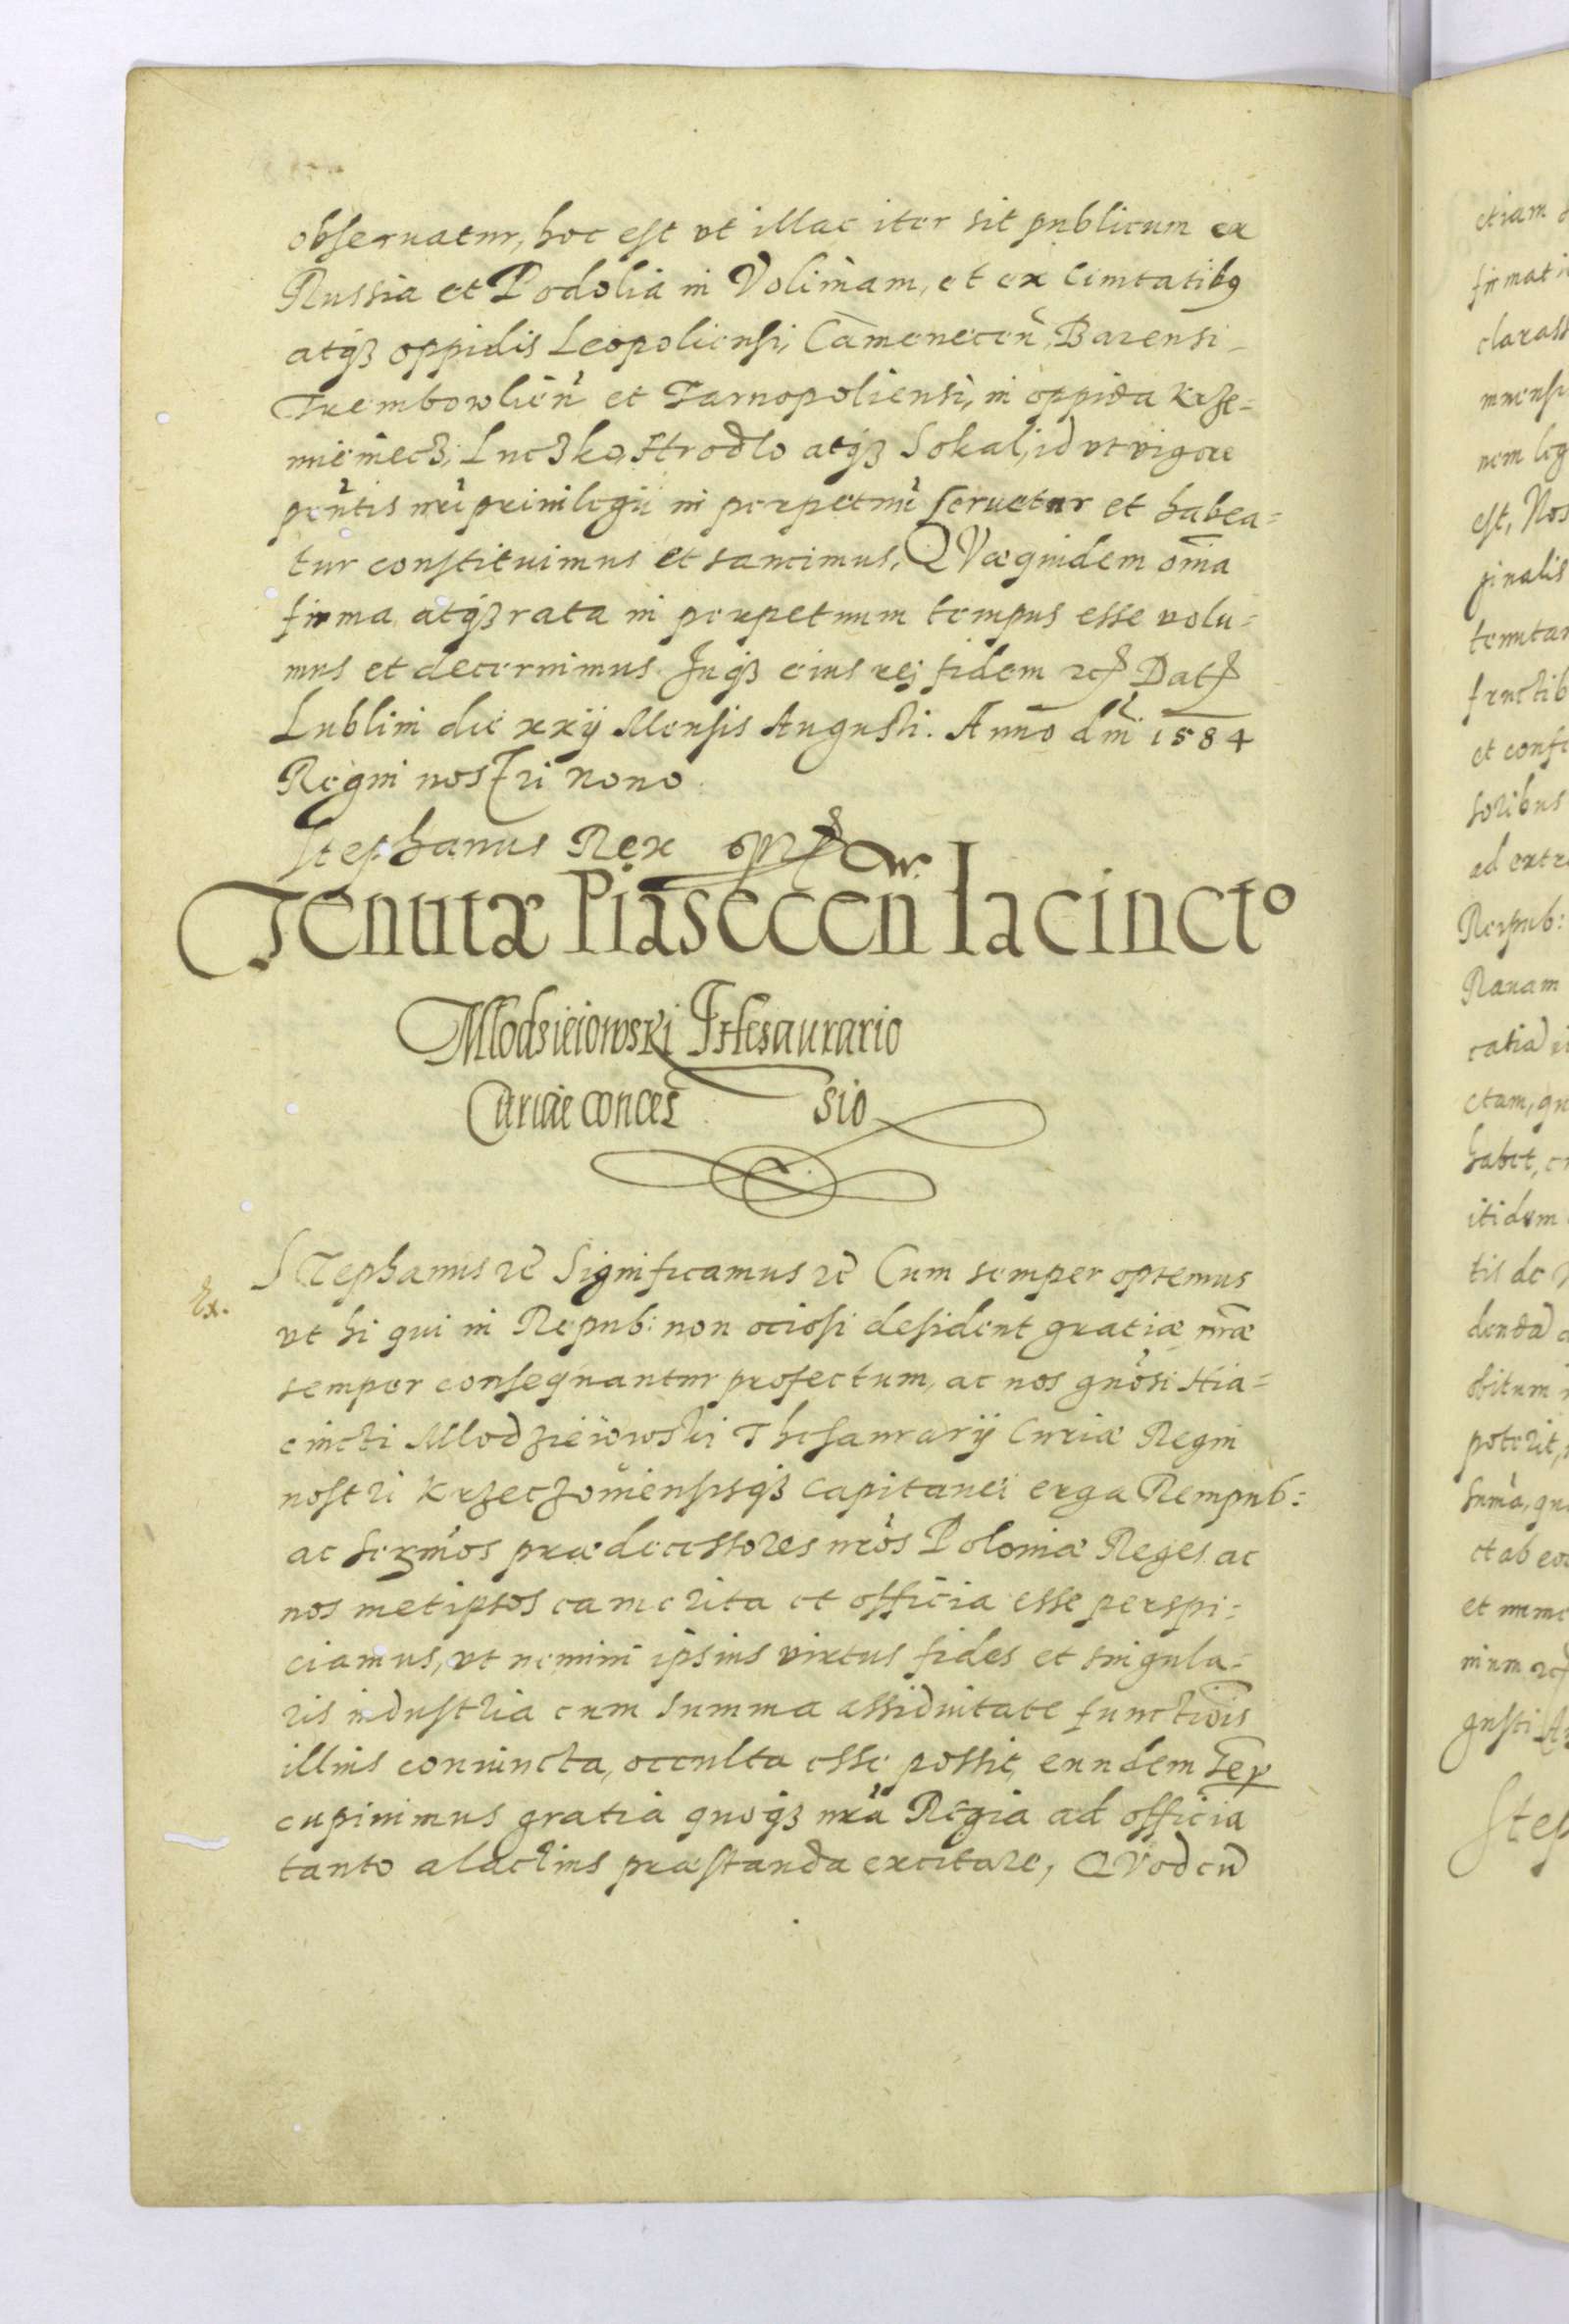 obseruatur, hoc est vt illac iter sit publicum ex
Russia et Podolia in Voliniam, et ex Ciuitatibꝰ
atqꝫ oppidis Leopoliensi, Camenecen̄, Barensi
Trembowlien̄ et Tarnopoliensi, in oppida Krze=
mieniecz, Luczko, Hrodlo atqꝫ Sokal, id vt vigore
pn̄tis nr̄i priuilegii in perpetuū seruetur et habea=
tur constituimus et sancimus, QVæquidem om̄ia
firma atqꝫ rata in perpetuum tempus esse volu=
mus et decernimus. Inqꝫ eius rei fidem ꝛc Dat
Lublini die xxij Mensis Augusti. Anno dn̄i 1584
Regni nostri nono.
Stephanus Rex
Tenutæ Piasecen̄ Iacincto
Mlodzieiowski Thesaurario
Curiæ conces sio
Ex.
Stephanus ꝛc Significamus ꝛc Cum semper optemus
vt hi qui in Repub: non ociosi desident gratiæ nr̄æ
semper consequantur profectum, ac nos gn̄osi Hia=
cincti Mlodzieiowski Thesaurarij Curiæ Regni
nostri Krzeczouiensisqꝫ Capitanei erga Rempub:
ac Serm̄os prædecessores nr̄os Poloniæ Reges ac
nos metipsos ea merita et officia esse perspi=
ciamus, vt nemini ipsius virtus fides et singula=
ris industria cum summa assiduitate functiōis
illius coniuncta, occulta esse possit, eundem
cupiuimus gratia quoqꝫ nr̄a Regia ad officia
tanto alacrius præstanda excitare, QVod cū
etiam
firmati
claras
nem
est, Nos
ginalis
tenutar
fructib
et conse
soribus
ad extr
Reipub:
Rauam
ctum, qu
habet,
itidem
tis de
denda
obitum
poterit,
sum̄a, qu
et ab eo
et nunc
gusti
Step